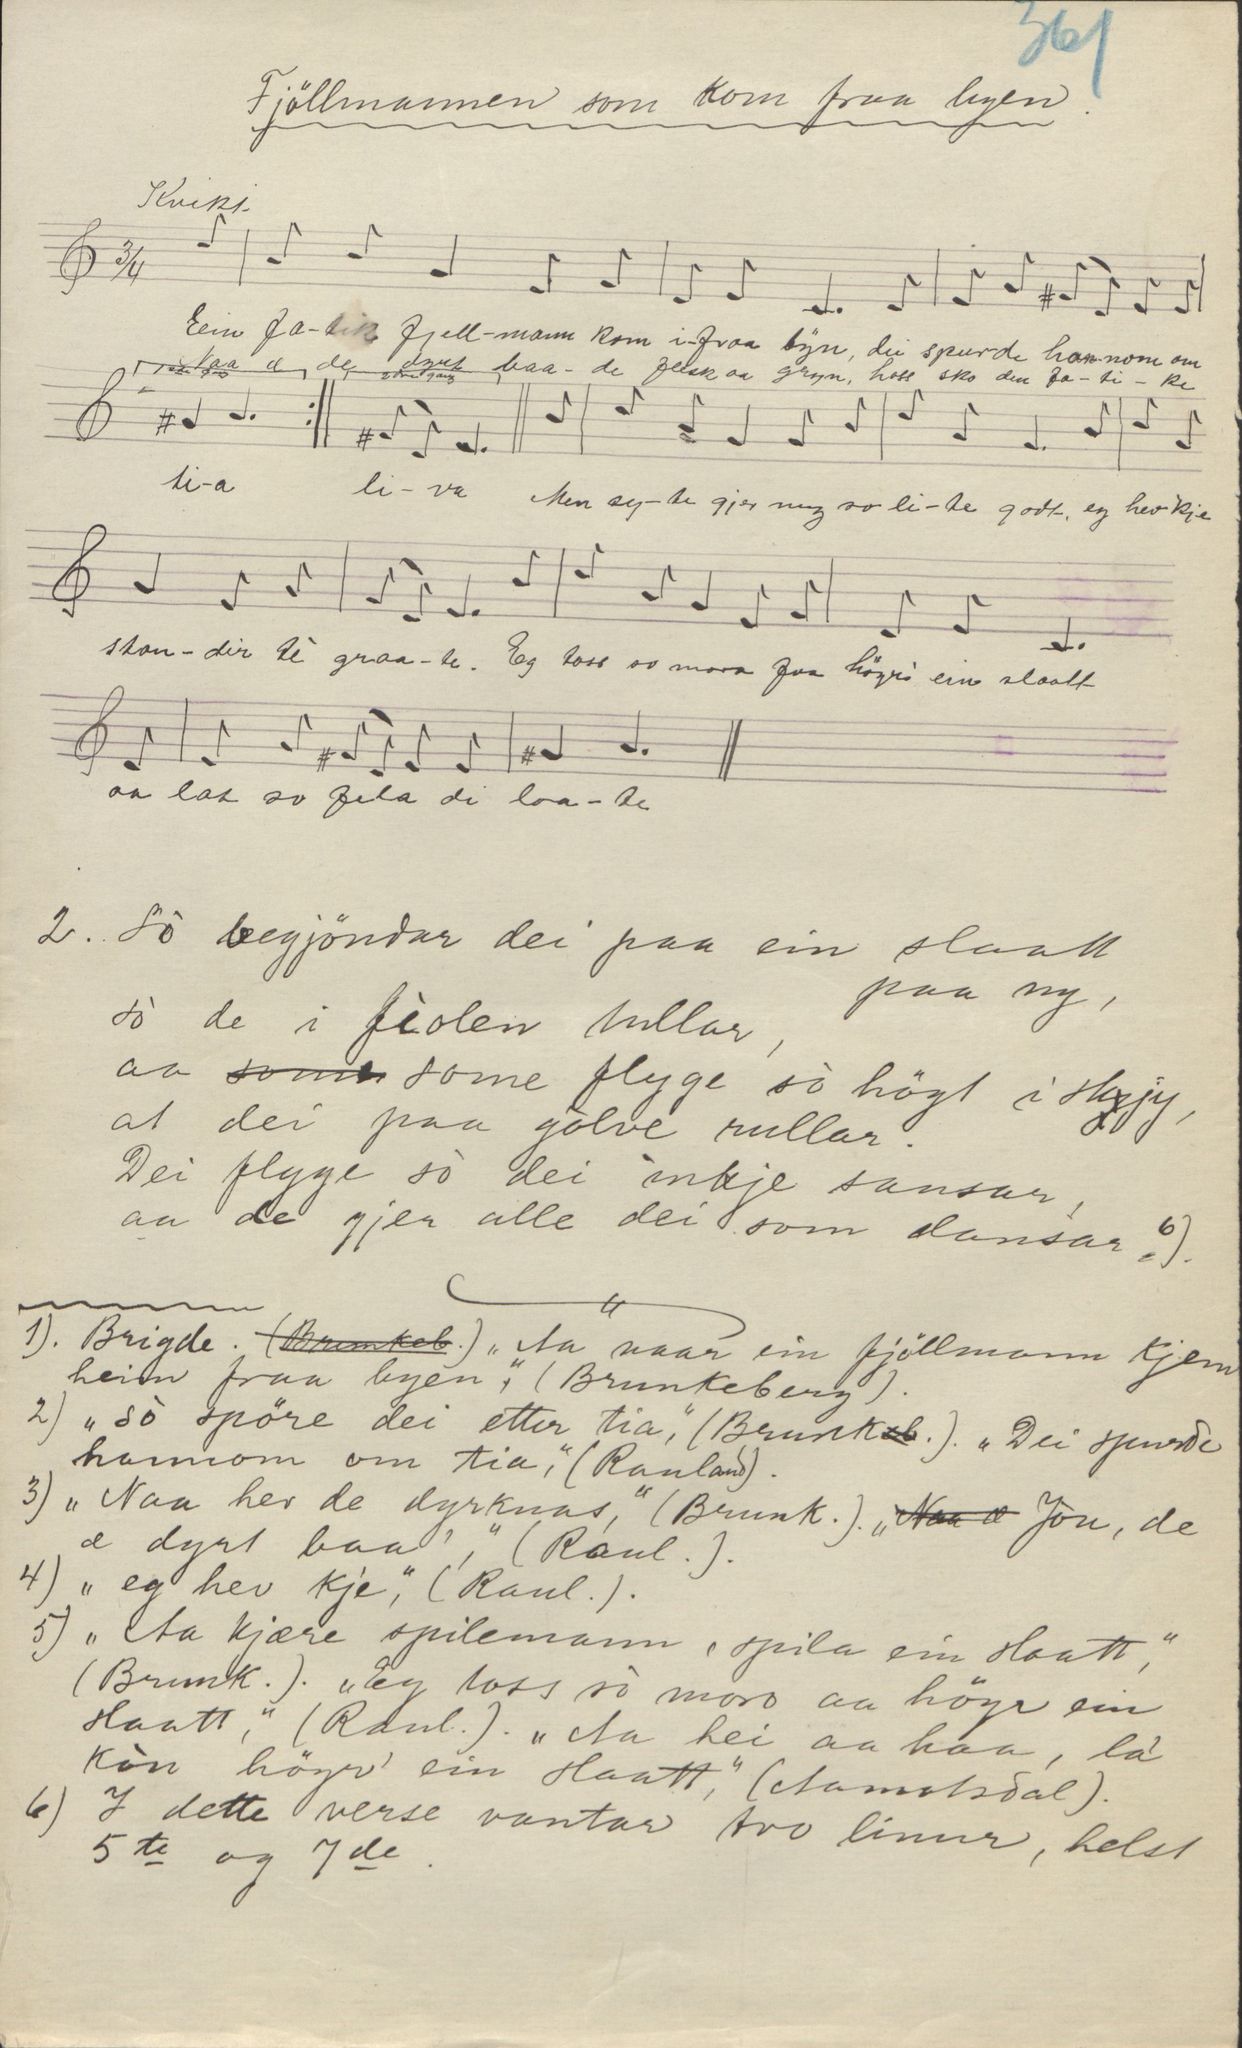 361
Fjöllmannen som kom fraa byen.
Kvikt
3/4
Ein fa-tik fjell-mann kom i-fraa byn, dei spurde han-nom om
Naa æ de dyrt baa-de flesk aa gryn, hoss sko den fa-ti-ke
ti-a li-va Men sy-te gjer meg so li-te godt, eg hev'kje
ston-dir te graa-te. Eg toss so mora faa höyre ein slaatt
aa lat so fela di laa-te
2. Sò begjöndar dei paa ein slaatt
paa ny,
sò de i fiolen tullar,
aa some some flyge sò högt i skyjy,
at dei paa gòlve rullar.
Dei flyge sò dei inkje sansar,
aa de gjer alle dei som dansar. 6).
1). Brigde. (Brunkeb.) „Aa naar ein fjöllmann kjem
heim fraa byen", (Brunkeberg).
2) „Sò spöre dei etter tia," (Brunkeb.). „Dei spurde
hannom om tia," (Rauland).
3) „Naa hev de dyrknas," (Brunk.). „Naa æ Jòu, de
æ dyrt baa'," (Raul.).
4) „eg hev kje," (Raul.).
5) „Aa kjære spilemann, spila ein slaatt,"
(Brunk.). „Eg toss sò moro aa höyr ein
slaatt," (Raul.). „Aa hei aa haa, la'
kòn höyr' ein slaatt," (Aamotsdal).
6) I dette verse vantar tvo linur, helst
5te og 7de.